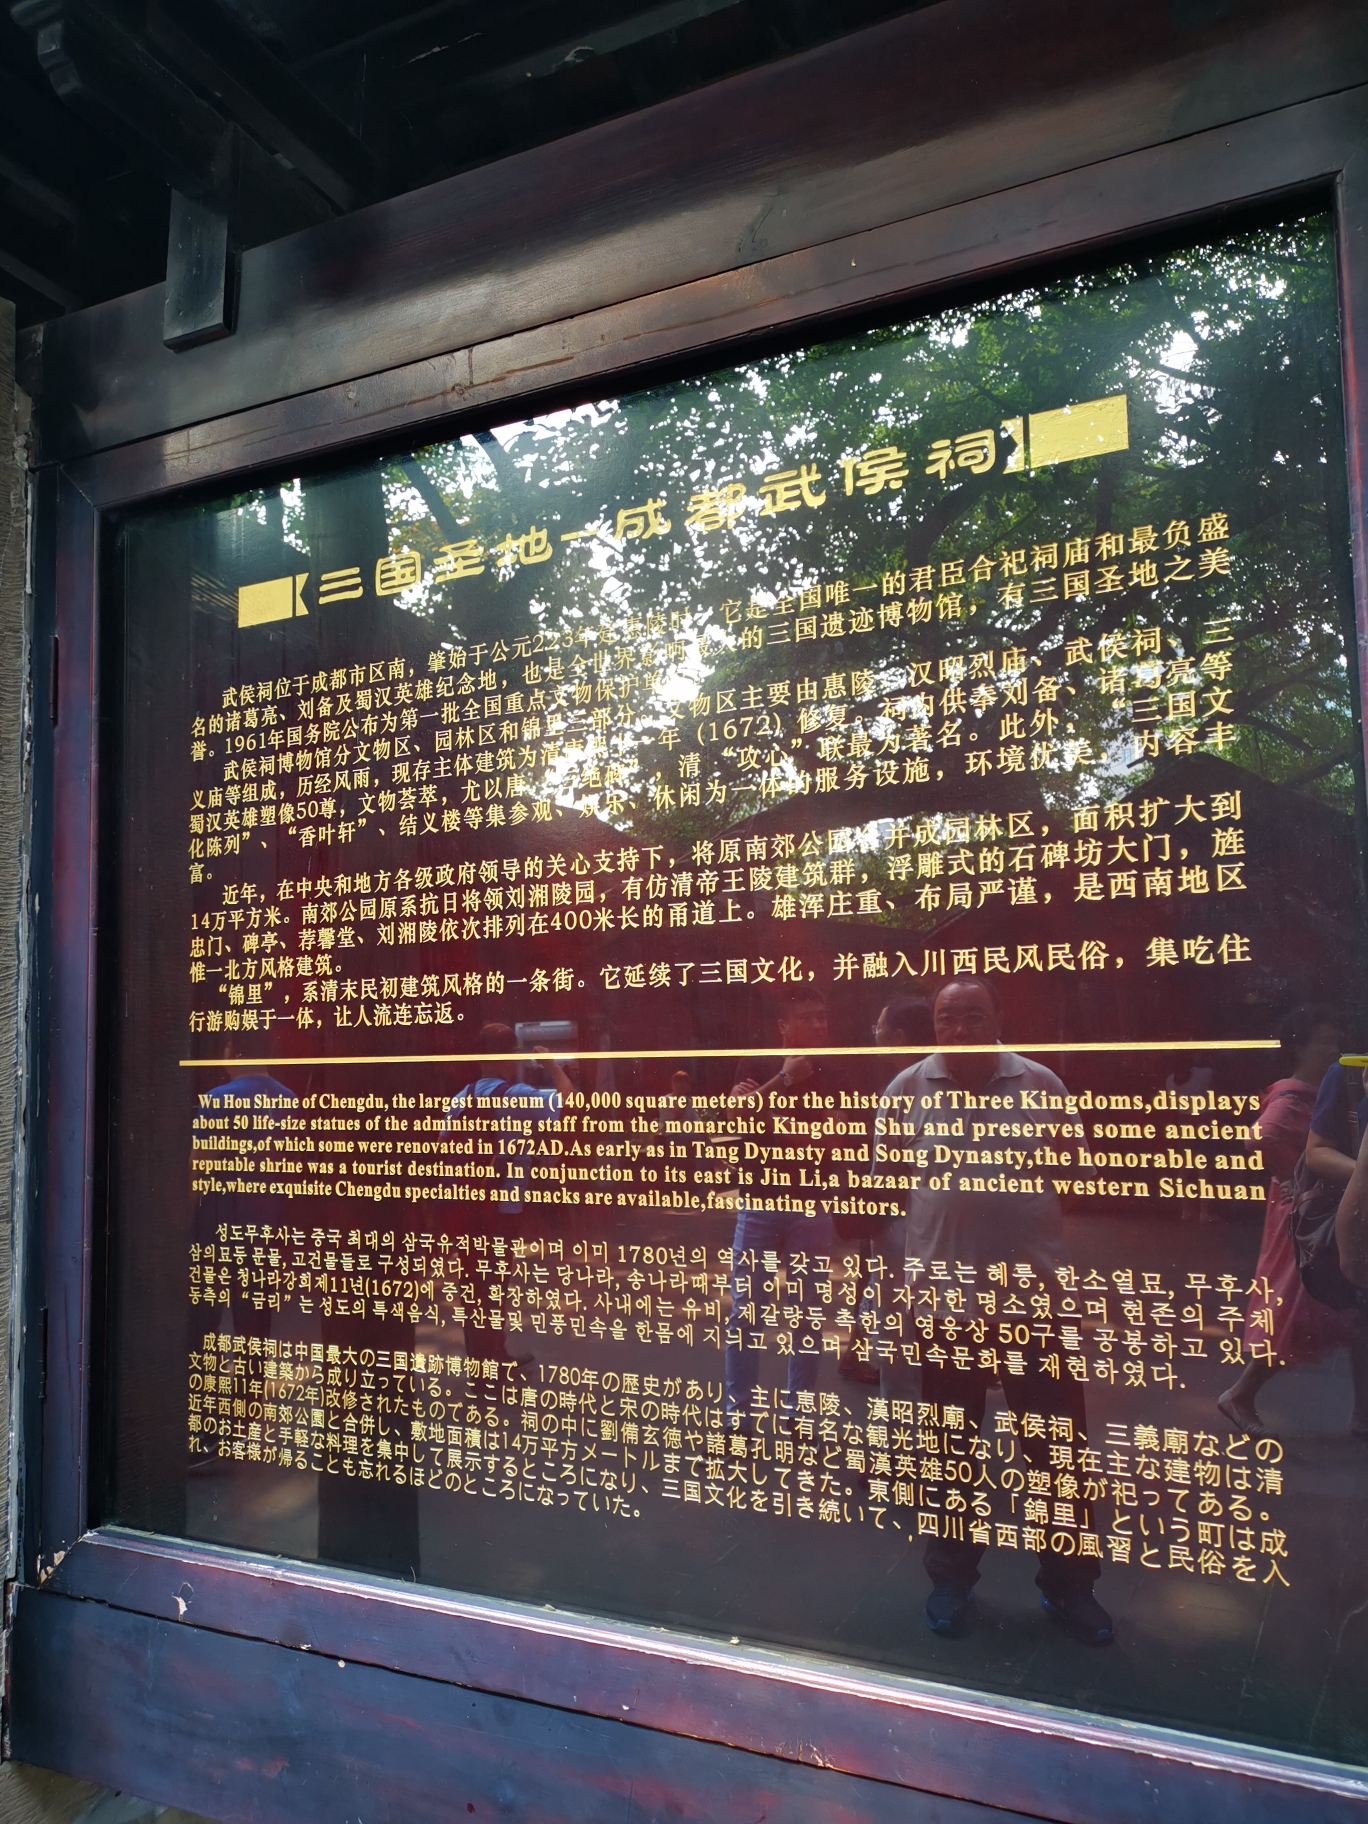 三国圣地—成都武侯祠
武侯祠位于成都市区南，肇始于公元223年 惠陵时，它是全国唯一的君臣合祀祠庙和最负盛
名的诸葛亮、刘备及蜀汉英雄纪念地，也是全世界影响最大的三国遗迹博物馆，有三国圣地之美
誉。1961年国务院公布为第一批全国重点文物保护单
武侯祠博物馆分文物区、园林区和锦里三部分。文物区主要由惠陵、汉昭烈庙、武侯祠、三
义庙等组成，历经风雨，现存主体建筑为清康熙十一年（1672）修复。祠内供奉刘备、诸葛亮等
蜀汉英雄塑像50尊，文物荟萃，尤以唐“三绝碑”，清“攻心”联最为著名。此外，“三国文
化陈列”、“香叶轩”、结义楼等集参观、娱乐、休闲为一体的服务设施，环境优美，内容丰
富。
近年，在中央和地方各级政府领导的关心支持下，将原南郊公园合并成园林区，面积扩大到
14万平方米。南郊公园原系抗日将领刘湘陵园，有仿清帝王陵建筑群，浮雕式的石碑坊大门，旌
忠门、碑亭、荐馨堂、刘湘陵依次排列在400米长的甬道上。雄浑庄重、布局严谨，是西南地区
惟一北方风格建筑。
“锦里”，系清末民初建筑风格的一条街。它延续了三国文化，并融入川西民风民俗，集吃住
行游购娱于一体，让人流连忘返。
Wu Hou Shrine of Chengdu, the largest museum (140,000 square meters) for the history of Three Kingdoms,displays
about 50 life-size statues of the administrating staff from the monarchic Kingdom Shu and preserves some ancient
buildings,of which some were renovated in 1672AD.As early as in Tang Dynasty and Song Dynasty,the honorable and
reputable shrine was a tourist destination. In conjunction to its east is Jin Li,a bazaar of ancient western Sichuan
style,where exquisite Chengdu specialties and snacks are available,fascinating visitors.
성도무후사는 중국 최대의 삼국유적박물관이며 이미 1780년의 역사를 갖고 있다. 주로는 혜릉, 한소열묘, 무후사,
삼의묘등 문물, 고건물들로 구성되였다. 무후사는 당나라, 송나라때부터 이미 명성이 자자한 명소였으며 현존의 주체
건물은 청나라강희제11년(1672)에 중건, 확장하였다. 사내에는 유비, 제갈량등 촉한의 영웅상 50구를 공봉하고 있다.
동측의 “금리”는 성도의 특색음식, 특산물및 민풍민속을 한몸에 지니고 있으며 삼국민속문화를 재현하였다.
成都武侯祠は中国最大の三国遺跡博物館で、1780年の歴史があり、主に恵陵、漢昭烈廟、武侯祠、三義廟などの
文物と古い建築から成り立っている。ここは唐の時代と宋の時代はすでに有名な観光地になり、現在主な建物は清
の康熙11年(1672年)改修されたものである。祠の中に劉備玄徳や諸葛孔明など蜀漢英雄50人の塑像が祀ってある。
近年西側の南郊公園と合併し、敷地面積は14万平方メートルまで拡大してきた。東側にある「錦里」という町は成
都のお土産と手軽な料理を集中して展示するところになり、三国文化を引き続いて、四川省西部の風習と民俗を入
れ、お客様が帰ることも忘れるほどのところになっていた。